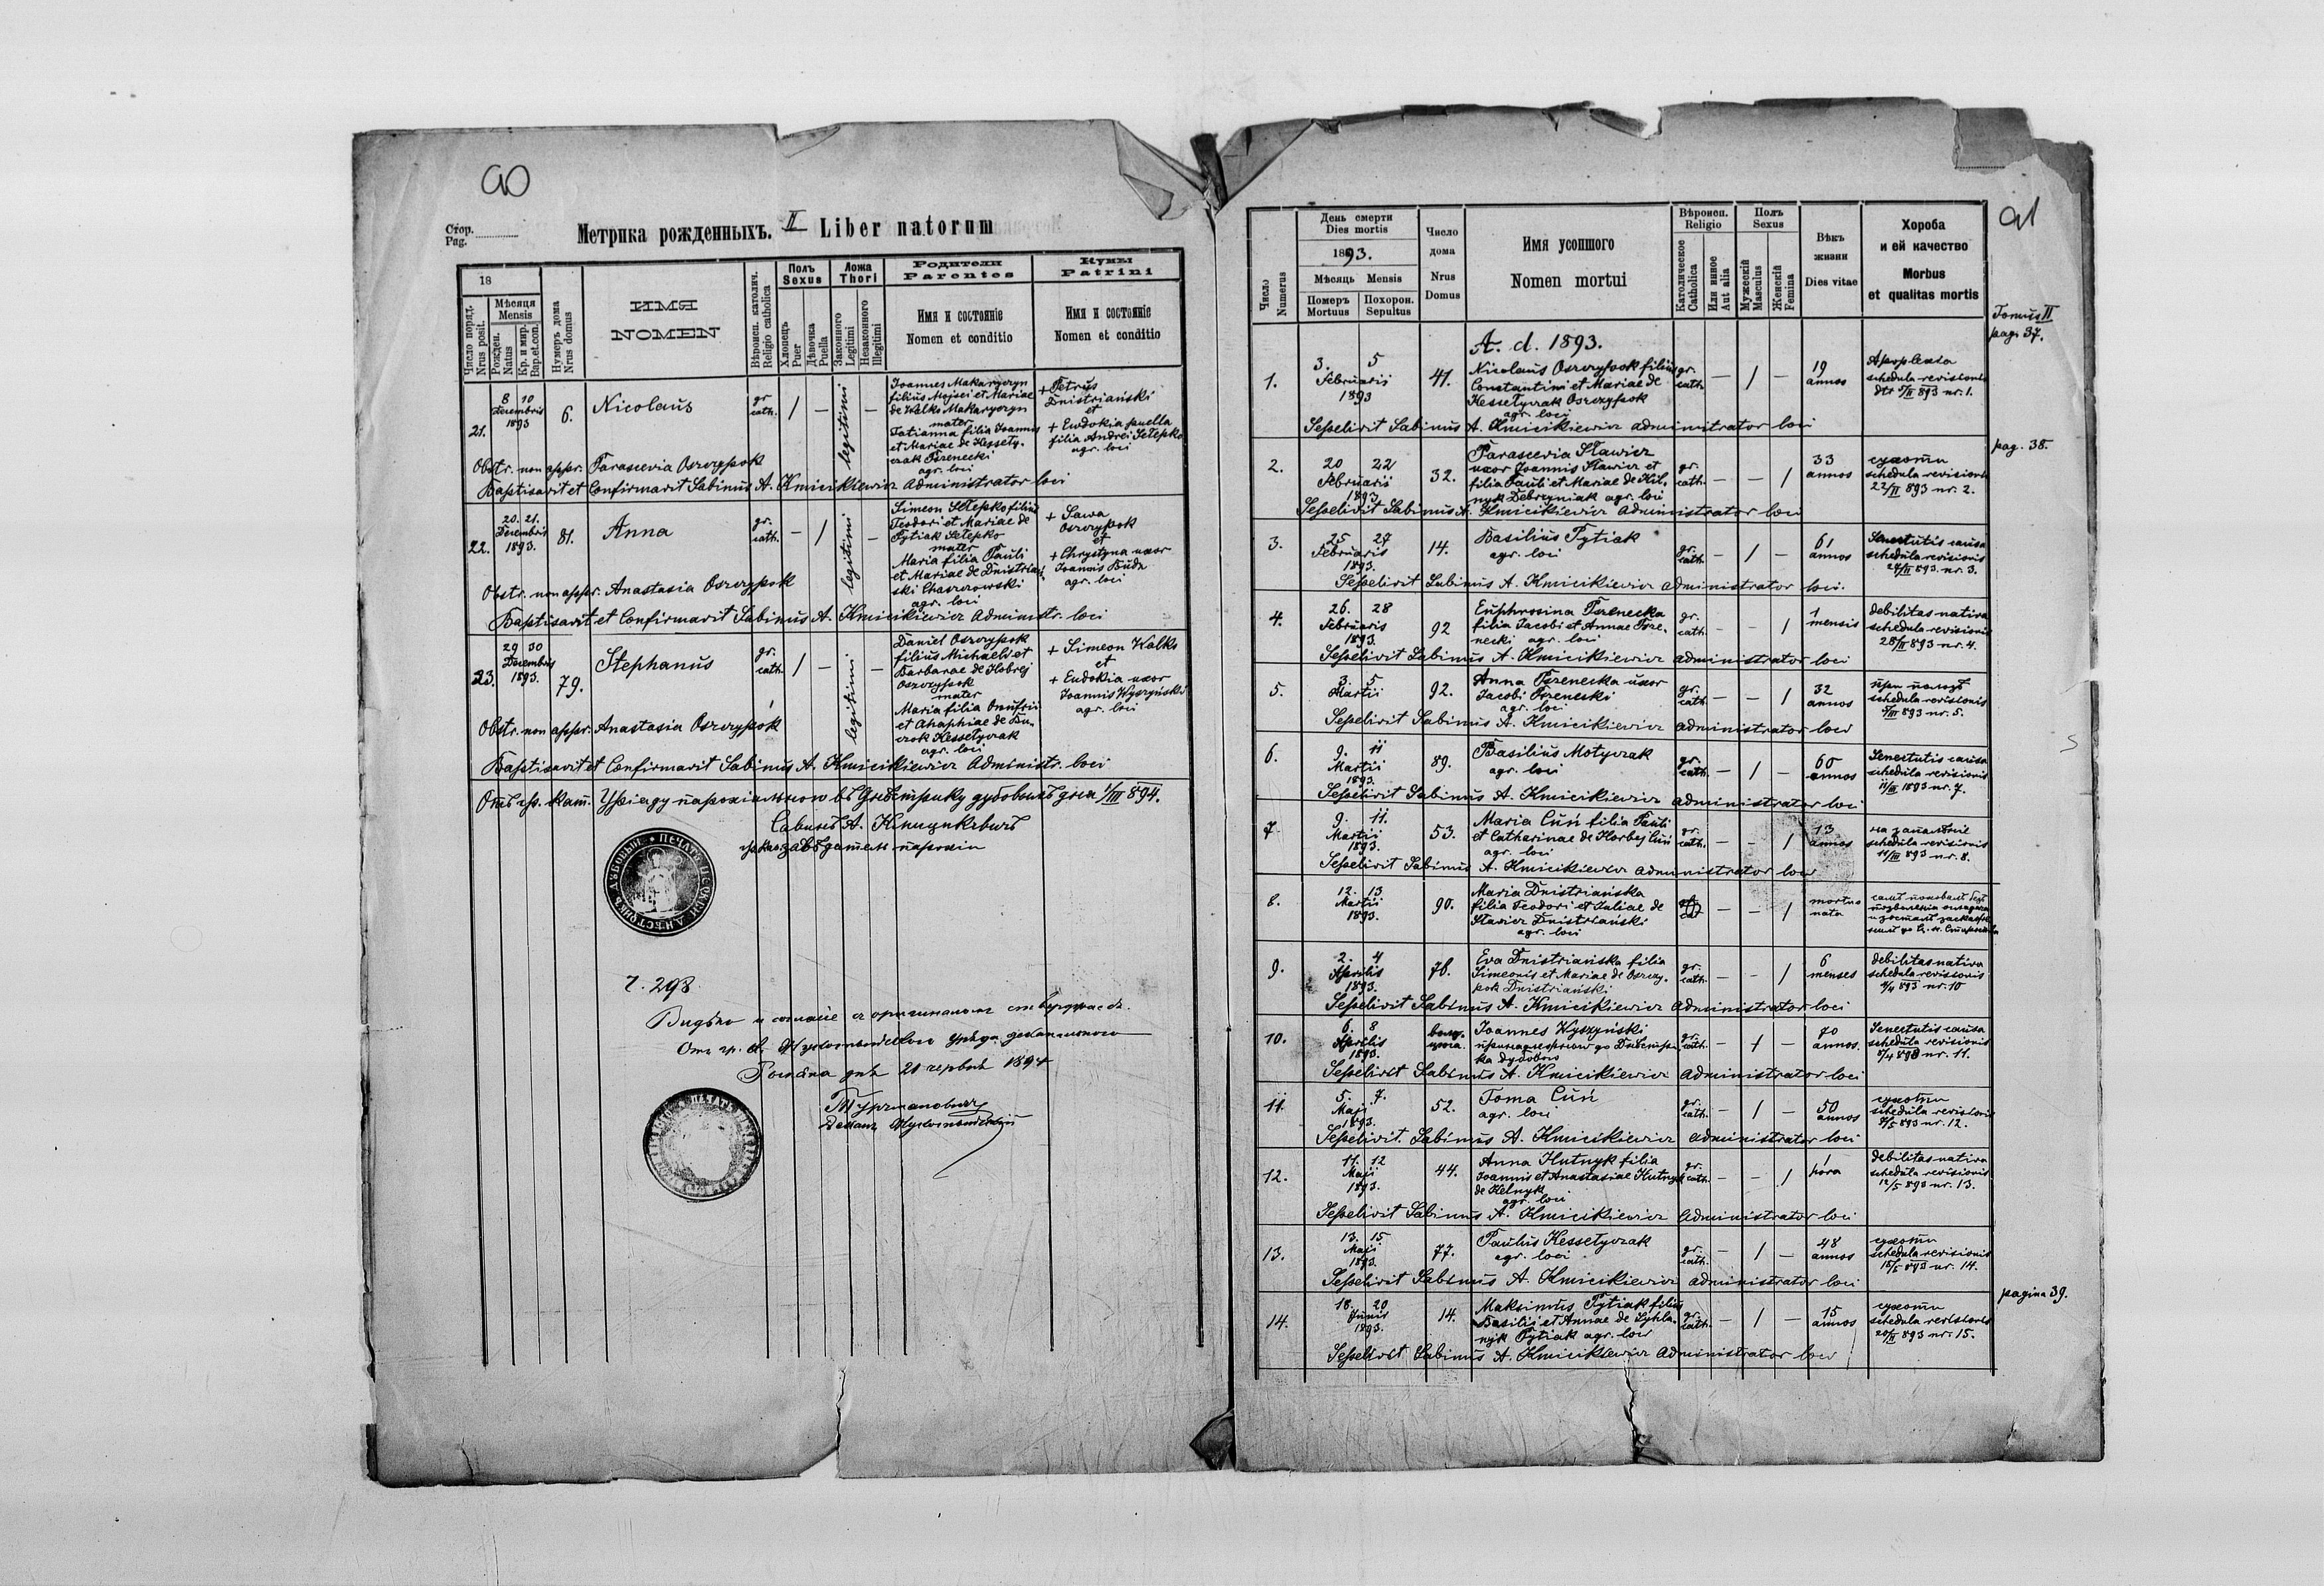 90
Стор.
Pag.
Метрика рожденныхъ. II Liber natorum
18
Число поряд.
Nrus posit.
Мѣсяця
Mensis
Рожден.
Natus
Кр. и мир.
Bap.et.con.
Нумеръ дома
Nrus domus
ИМЯ
NOMEN
Вѣроисп. католич.
Religio catholica
Полъ
Sexus
Хлопецъ
Puer
Дѣвочка
Puella
Ложа
Thori
Законного
Legitimi
Незаконного
Illegitimi
Родители
Parentes
Имя и состояніе
Nomen et conditio
Кумы
Patrini
Имя и состояніе
Nomen et conditio
21.
8 10
Decembris
1893
6.
Nicolaus
gr
cath.
/ —
legitimi
—
Joannes Makaryczyn
filius Mojsei et Mariae
de Kalks Makaryczyn
mater
Tatianna filia Joannis
et Mariae de Kessety-
czak Pzenecki
agr. loci
+ Petrus
Dnistriański
et
+ Eudokia puella
filia Andrei Stepko
agr. loci
Obstr. non appr. Parascevia Oszczypok
Baptisavit et Confirmavit Sabinus A. Kmicikiewicz Administrator loci
22.
20. 21.
Decembris
1893.
81.
Anna
gr.
cath.
— /
legitimi
—
Simeon Stepko filius
Teodori et Mariae de
Pytiak Stepko
mater
Maria filia Pauli
et Mariae de Dnistriań-
ski Chaszczowski
agr. loci
+ Sawa
Oszczypok
et
+ Chrystyna uxor
Joannis Budz
agr. loci
Obstr. non appr. Anastasia Oszczypok
Baptisavit et Confirmavit Sabinus A. Kmicikiewicz Administr. loci
23.
29 30
Decembris
1893.
79.
Stephanus
gr.
cath.
/ —
legitimi
—
Daniel Oszczypok
filius Michaelis et
Barbarae de Hobrej
Oszczypok
mater
Maria filia Onufrii
et Ahaphiae de Bu-
czok Kessetyczak
agr. loci
+ Simeon Kalks
et
+ Eudokia uxor
Joannis Wyszyński
agr. loci
Obstr. non appr. Anastasia Oszczypok
Baptisavit et Confirmavit Sabinus A. Kmicikiewicz Administr. loci
Отъ гр. кат. Уряду парохіяльного въ Днѣстрику дубовымъ дня 1/III 894.
Сабинъ А. Кмицикевичъ
завѣдатель парохіи
Ч. 298
Видѣно и согласіе съ оригиналомъ стверджаесь.
Турчманович
91
Число
Numerus
День смерти
Dies mortis
1893.
Мѣсяць Mensis
Померъ
Mortuus
Похорон.
Sepultus
Число
дома
Nrus
Domus
Имя усопшого
Nomen mortui
Вѣроисп.
Religio
Католическое
Catholica
Или инное
Aut alia
Полъ
Sexus
Мужескій
Masculus
Женскій
Femina
Вѣкъ
жизни
Dies vitae
Хороба
и ей качество
Morbus
et qualitas mortis
Tomus II
pag. 37.
A. d. 1893.
1.
3. 5
Februarii
1893
41.
Nicolaus Oszczypok filius
Constantini et Mariae de
Kessetyczak Oszczypok
agr. loci
gr.
cath.
— / —
19
annos
Apoplexia
schedula revisionis
dto 5/II 893 nr. 1.
Sepelivit Sabinus A. Kmicikiewicz administrator loci
pag. 38.
2.
20 22
Februarii
1893
32.
Parascevia Stawicz
uxor Joannis Stawicz et
filia Pauli et Mariae de Kil-
nyk Debryniak agr. loci
gr.
cath.
— — /
33
annos
сухоты
schedula revisionis
22/II 893 nr. 2.
Sepelivit Sabinus A. Kmicikiewicz Administrator loci
3.
25 27
Februaris
1893.
14.
Basilius Pytiak
agr. loci
gr.
cath.
— / —
61
annos
Senectutis causa
schedula revisionis
27/II 893. nr. 3.
Sepelivit Sabinus A. Kmicikiewicz administrator loci.
4.
26. 28
Februaris
1893.
92
Euphrosina Pzenecka
filia Jacobi et Annae Pze-
necki agr. loci
gr.
cath.
— — /
1
mensis
debilitas nativa
schedula revisionis
28/II 893 nr. 4.
Sepelivit Sabinus A. Kmicikiewicz administrator loci
5.
3. 5
Martii
92.
Anna Pzenecka uxor
Jacobi Pzenecki
agr. loci
gr.
cath.
— — /
32
annos
при пологѣ
schedula revisionis
5/III 893 nr. 5.
Sepelivit Sabinus A. Kmicikiewicz administrator loci
6.
9. 11
Martii
1893.
89.
Basilius Motyczak
agr. loci
gr.
cath.
— / —
60
annos
Senectutis causa
schedula revisionis
11/III 1893 nr. 7.
Sepelivit Sabinus A. Kmicikiewicz administrator loci
7.
9. 11.
Martii
1893.
53.
Maria Cuń filia Pauli
et Catharinae de Horbej Cuń
agr. loci
gr.
cath.
— — /
13
annos
на запаленіе
schedula revisionis
11/III 893 nr. 8.
Sepelivit Sabinus A. Kmicikiewicz administrator loci
8.
12. 13
Martii
1893.
90.
Maria Dnistriańska
filia Teodori et Juliae de
Stawicz Dnistriański
agr. loci
— — /
mortuo
nata
9.
2. 4
Aprilis
1893.
76.
Eva Dnistriańska filia
Simeonis et Mariae de Oszczy-
pok Dnistriański
gr.
cath.
— — /
6
menses
debilitas nativa
schedula revisionis
4/4 893 nr. 10
Sepelivit Sabinus A. Kmicikiewicz Administrator loci
10.
6. 8
Aprilis
1893.
Joannes Wyszyński
gr.
cath.
— / —
70
annos.
Senectutis causa
schedula revisionis
8/4 893 nr. 11.
Sepelivit Sabinus A. Kmicikiewicz Administrator loci
11.
5. 7.
Maji
1893.
52.
Toma Cuń
agr. loci
gr.
cath.
— / —
50
annos
сухоты
schedula revisionis
7/5 893 nr. 12.
Sepelivit Sabinus A. Kmicikiewicz administrator loci
12.
11. 12
Maji
1893.
44.
Anna Hutnyk filia
Joannis et Anastasiae Hutnyk
de Kelnyk
agr. loci
gr.
cath.
— — /
1
hora
debilitas nativa
schedula revisionis
12/5 893 nr. 13.
Sepelivit Sabinus A. Kmicikiewicz Administrator loci
13.
13. 15
Maji
1893.
77.
Paulus Kessetyczak
agr. loci
gr.
cath.
— / —
48
annos
сухоты
schedula revisionis
15/5 893 nr. 14.
Sepelivit Sabinus A. Kmicikiewicz administrator loci
pagina 39.
14.
18. 20
Junii
1893.
14.
Maksimus Pytiak filius
Basilii et Annae de Syhla-
nyk Pytiak agr. loci
gr.
cath.
— / —
15
annos
сухоты
schedula revisionis
893 nr. 15.
Sepelivit Sabinus A. Kmicikiewicz Administrator loci